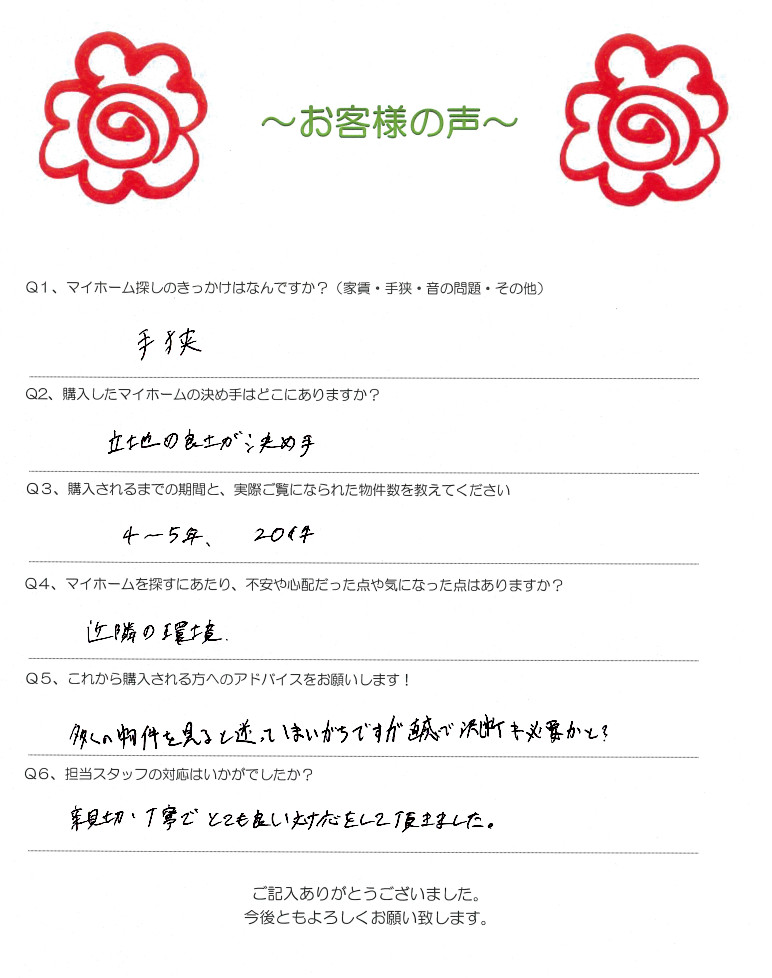 ～お客様の声～
Q1、マイホーム探しのきっかけはなんですか？（家賃・手狭・音の問題・その他）
手狭
Q2、購入したマイホームの決め手はどこにありますか？
立地の良さが決め手
Q3、購入されるまでの期間と、実際ご覧になられた物件数を教えてください
4～5年、 20件
Q4、マイホームを探すにあたり、不安や心配だった点や気になった点はありますか？
近隣の環境.
Q5、これから購入される方へのアドバイスをお願いします！
多くの物件を見ると迷ってしまいがちですが直感で決断も必要かと？
Q6、担当スタッフの対応はいかがでしたか？
親切・丁寧でとても良い対応をして頂きました。
ご記入ありがとうございました。
今後ともよろしくお願い致します。